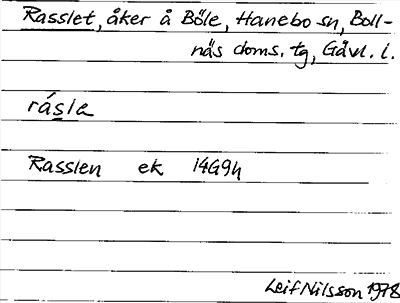 Rasslet, åker å Böle, Hanebo sn, Boll-
näs doms. tg, Gävl. l.
rásla
Rasslen ek 14G9h
Leif Nilsson 1978